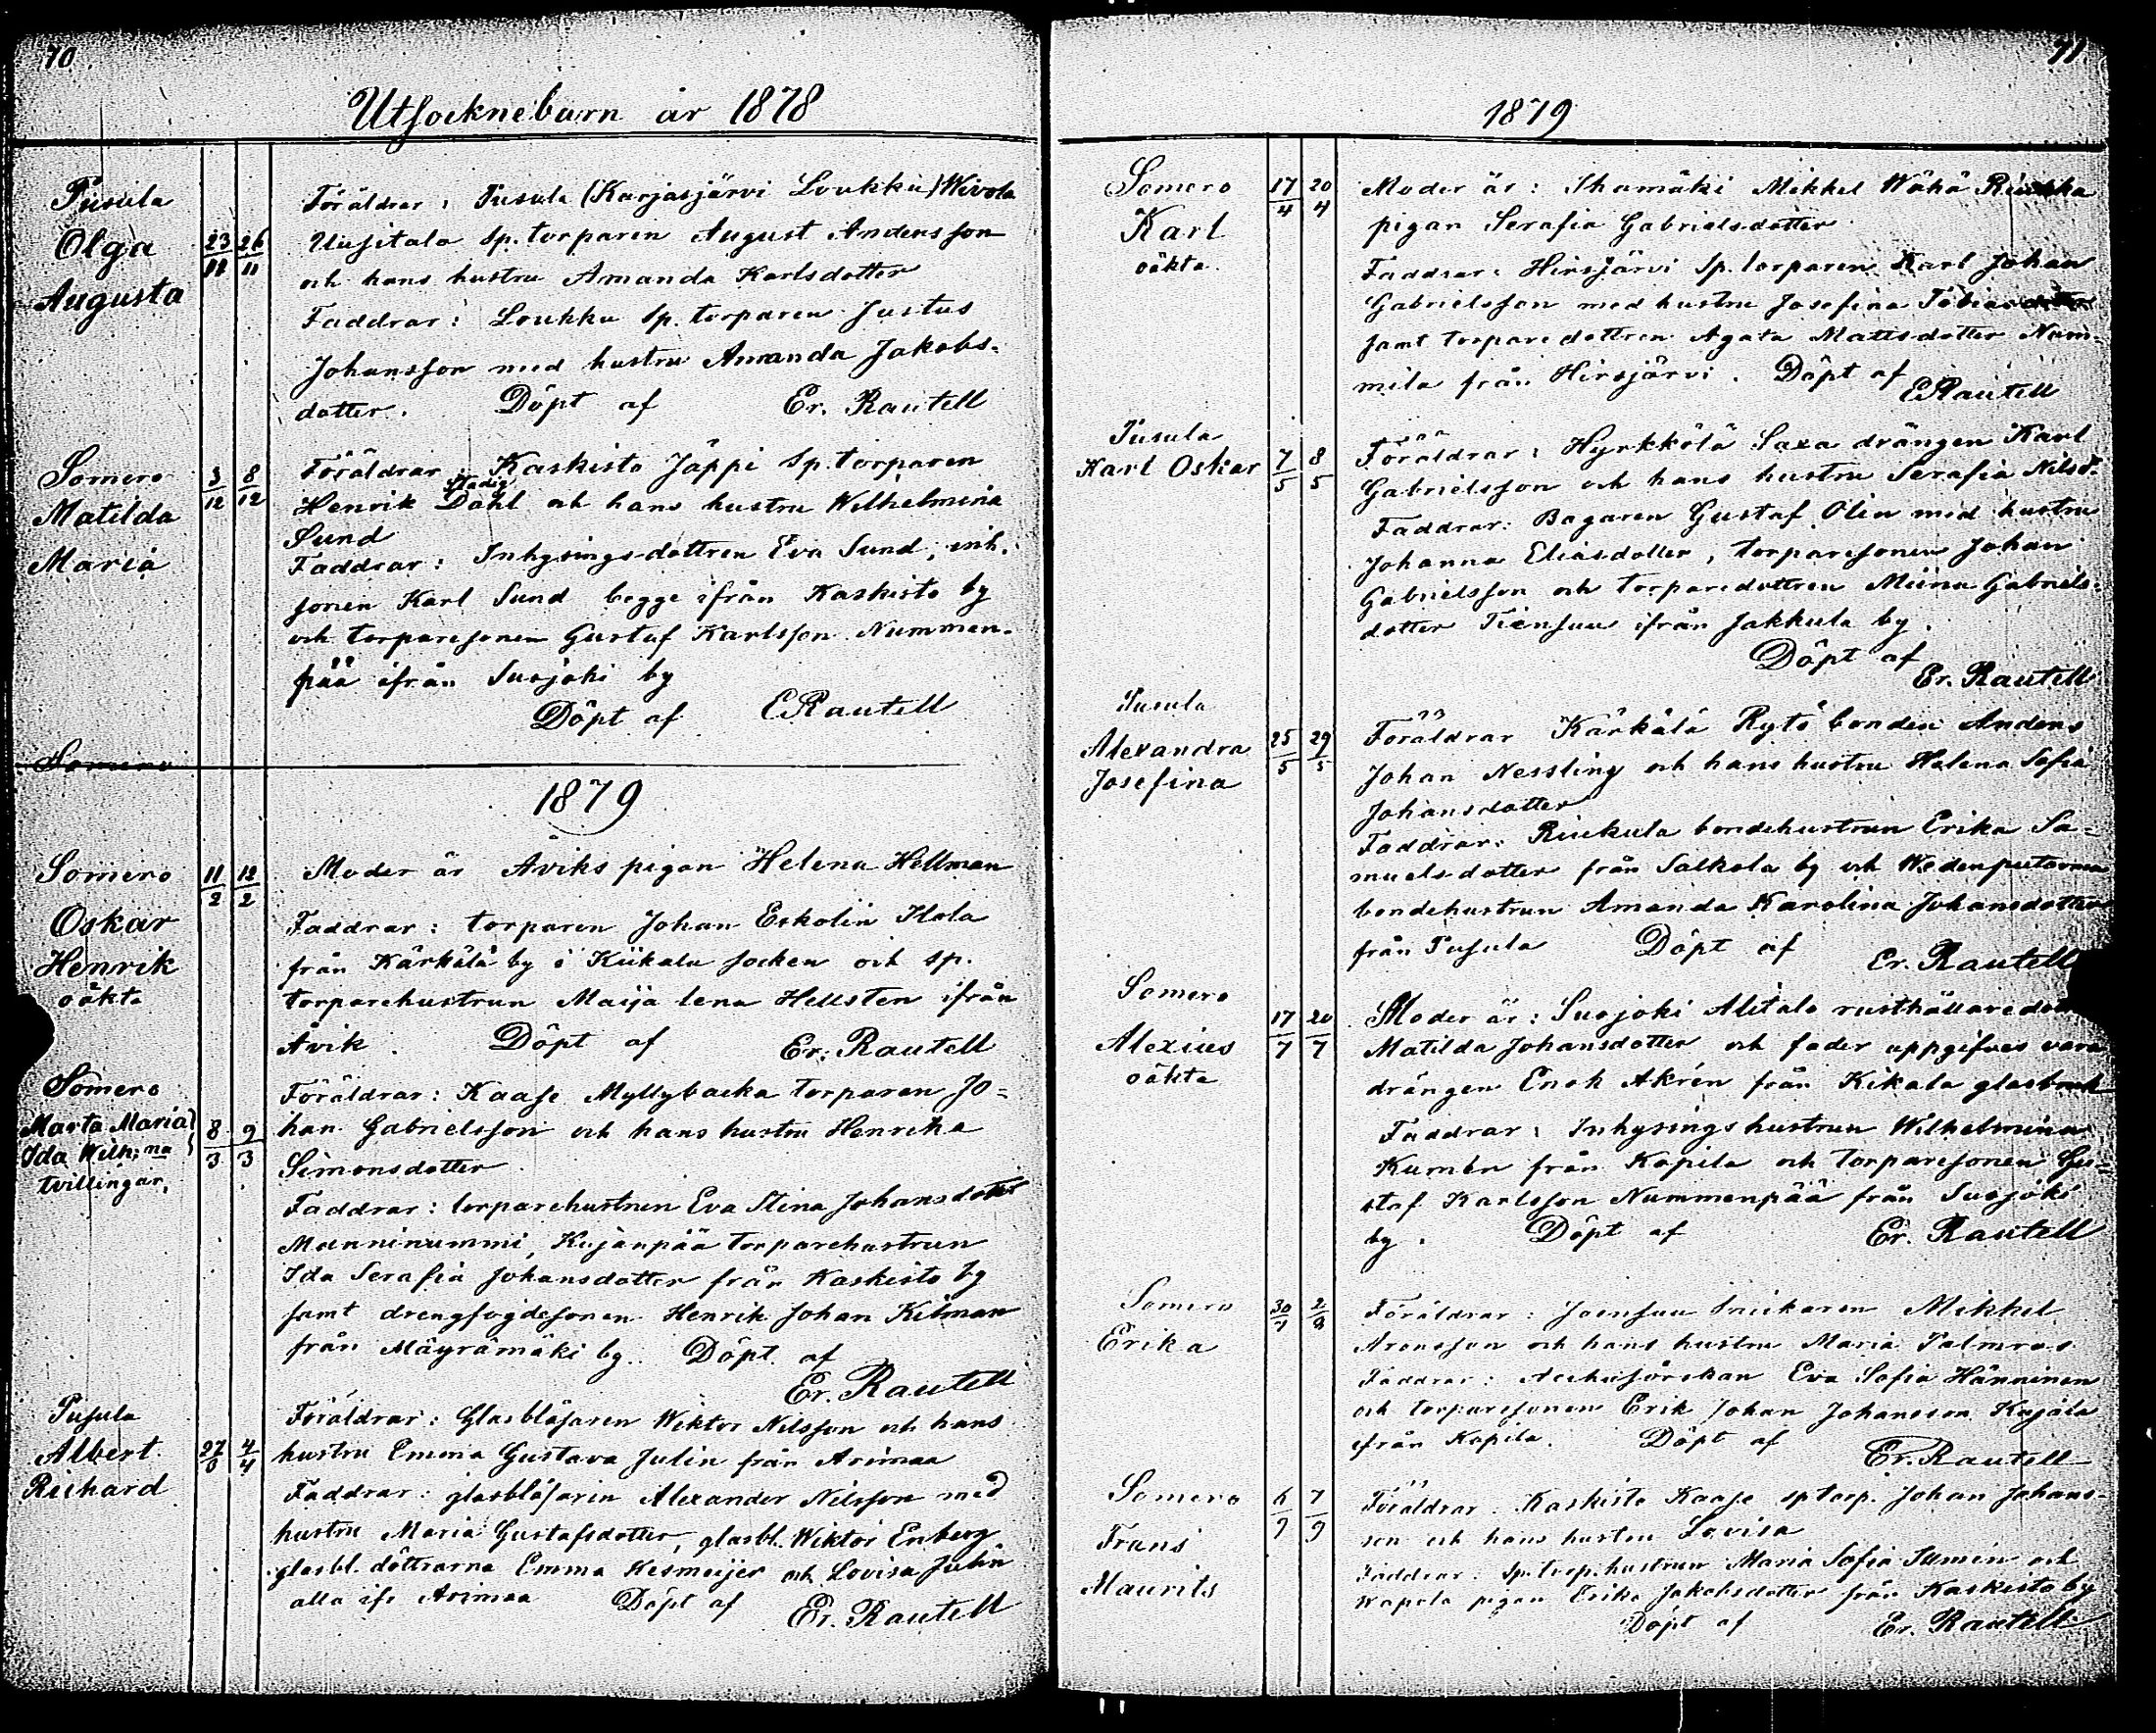 70
Utsocknebarn år 1878
Pusula
Olga
Augusta
23/11 26/11
Föräldrar: Pusula (Karjasjärvi Loukku) Wivola
Uusitalo Sp. torparen August Andersson
och hans hustru Amanda Karlsdotter
Faddrar: Loukku Sp. torparen Justus
Johansson med hustru Amanda Jakobs-
dotter. Döpt af Er. Rautell
Somero
Matilda
Maria
3/12 8/12
Föräldrar: Kaskisto Jäppi Sp. torparen
Henrik Stadig Dahl och hans hustru Wilhelmina
Sund
Faddrar: Inhysingsdottren Eva Sund, inh.
sonen Karl Sund begge ifrån Kaskisto by
och torparesonen Gustaf Karlsson Nummen-
pää ifrån Suojoki by
Döpt af E Rautell
Somero
1879
Somero
Oskar
Henrik
oäkta
11/2 12/2
Moder är Åviks pigan Helena Hellman
Faddrar: torparen Johan Eskolin Ilola
från Kärkälä by i Kiikala socken och sp.
torparehustrun Maija lena Hellsten ifrån
Åvik. Döpt af Er. Rautell
Somero
Marta Maria
Ida Wilh:na
tvillingar,
8/3 9/3
Föräldrar: Kaase Myllybacka torparen Jo=
han Gabrielsson och hans hustru Henrika
Simonsdotter
Faddrar: torparehustrun Eva Stina Johansdotter
Manninummi, Kujanpää torparehustrun
Ida Serafia Johansdotter från Kaskisto by
samt drengfogdesonen Henrik Johan Kilman
från Mäyrämäki by. Döpt af
Er. Rautell
Pusula
Albert
Richard
4/4
Föräldrar: Glasblåsaren Wiktor Nilsson och hans
hustru Emma Gustava Julin från Arimaa
Faddrar: glasblåsarin Alexander Nilsson med
hustru Maria Gustafsdotter, glasbl. Wiktor Enberg
glasbl. döttrarna Emma Kesmeijer och Lovisa Julin
alla ifr Arimaa Döpt af Er. Rautell
71
1879
Somero
Karl
oäkta.
17/4 20/4
Moder är: Ihamäki Mikkel Wähä
pigan Serafia Gabrielsdotter
Faddrar: Hirsjärvi Sp. torparen Karl Johan
Gabrielsson med hustru Josefina Tobiasdotter
samt torparedottren Agata Mattsdotter Num-
mila från Hirsjärvi. Döpt af
E Rautell
Pusula
Karl Oskar
7/5 8/5
Föräldrar: Hyrkkölä Saxa drängen Karl
Gabrielsson och hans hustru Serafia Nilsd.
Faddrar: Bagaren Gustaf Olin med hustru
Johanna Eliasdotter, torparesonen Johan
Gabrielsson och torparedottren Miina Gabriels-
dotter Tiensuu ifrån Jakkula by.
Döpt af
Er. Rautell
Pusula
Alexandra
Josefina
25/5 29/5
Föräldrar Kärkälä Rytö bonden Anders
Johan Nessling och hans hustru Helena Sofia
Johansdotter
Faddrar: Riukula bondehustrun Erika Sa-
muelsdotter från Salkola by och
bondehustrun Amanda Karolina Johansdotter
från Pusula Döpt af Er. Rautell
Somero
Alexius
oäkta
17/7 20/7
Moder är: Suojoki Alitalo rusthållaredott
Matilda Johansdotter och fader uppgifves vara
drängen Enok Akrén från Kikala glasbruk
Faddrar: Inhysings hustrun Wilhelmina
Kumén från Kopila och torparesonen Gu-
staf Karlsson Nummenpää från Suojoki
by. Döpt af Er. Rautell
Somero
Erika
30/7 2/8
Föräldrar: Joensuu Snickaren Mikkel
Aronsson och hans hustru Maria Palmros
Faddrar: Eva Sofia Hänninen
och torparesonen Erik Johan Johansson Kujala
ifrån Kopila. Döpt af Er. Rautell
Somero
Frans
Maurits
6/9 7/9
Föräldrar: Kaskisto Kaase sp torp. Johan Johans-
son och hans hustru Lovisa
Faddrar: Sp. torp. hustrun Maria Sofia och
pigan Erika Jakobsdotter från Kaskisto by
Döpt af Er. Rautell